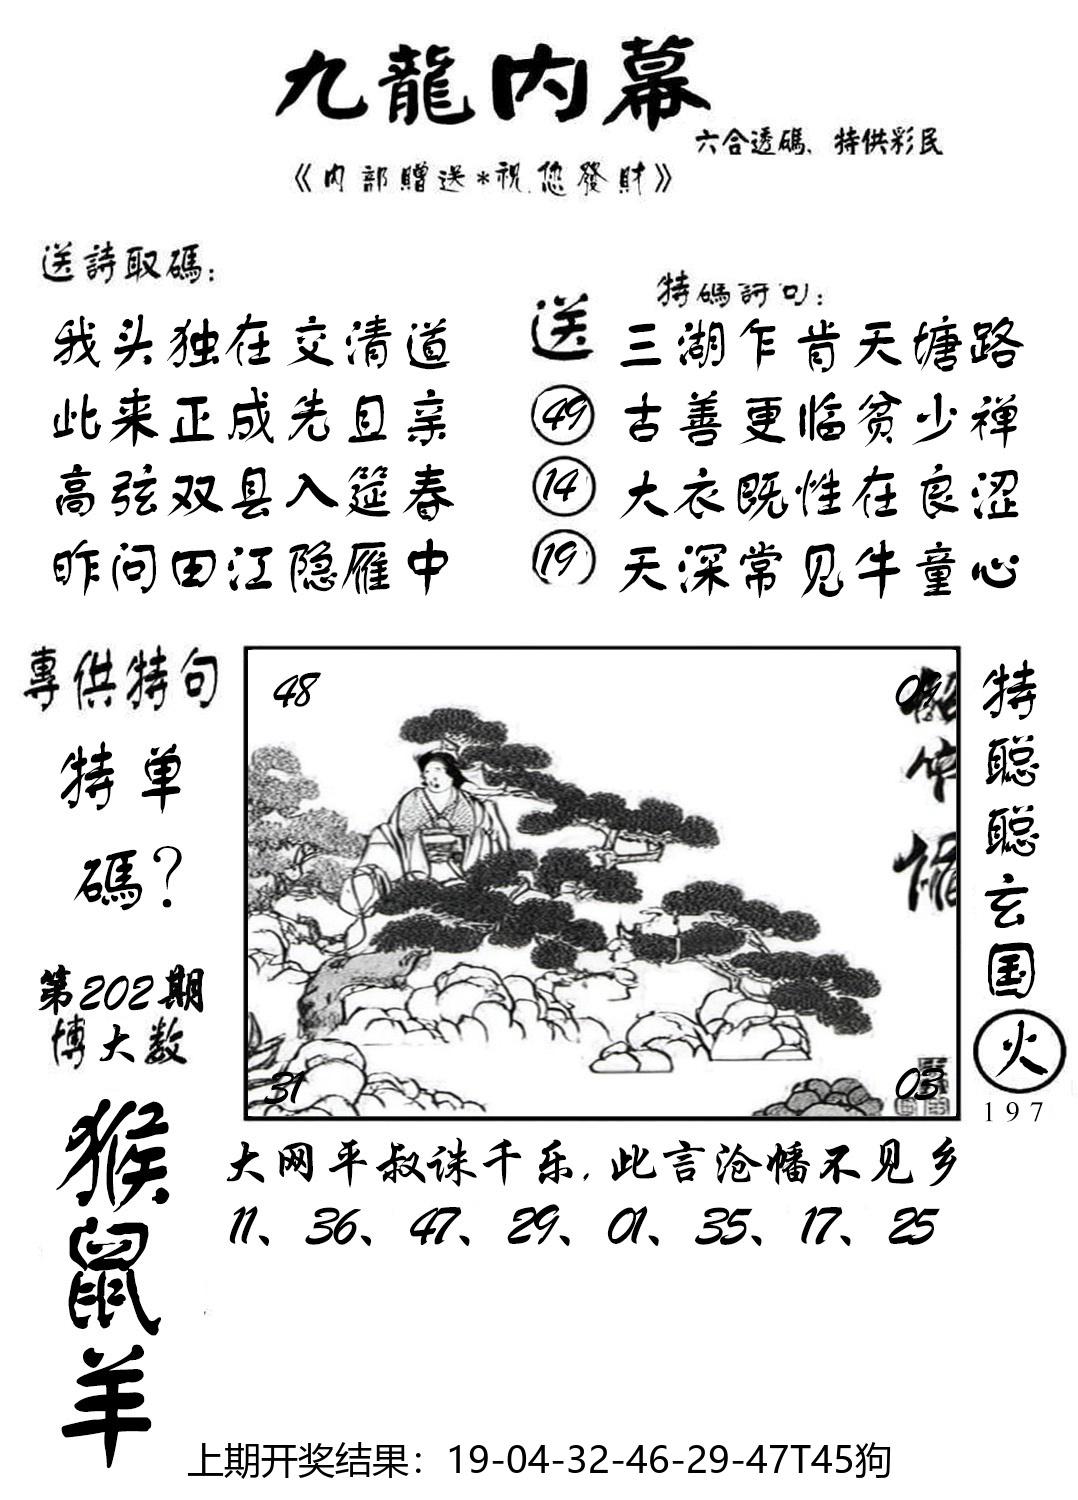 九龍内幕
六合透碼、特供彩民
《内部贈送*祝您發財》
送詩取碼：
我头独在交清道
此来正成先且亲
高弦双县入筵春
昨问田江隐雁中
送
49
14
19
特碼詩句：
三湖乍肯天塘路
古善更临贫少禅
大衣既性在良涩
天深常见牛童心
專供特句
特单
碼？
第202期
博大数
猴
鼠
羊
48
31
03
特聪聪玄国
火
197
大网平叔诛千乐，此言沧幡不见乡
11、36、47、29、01、35、17、25
上期开奖结果：19-04-32-46-29-47T45狗